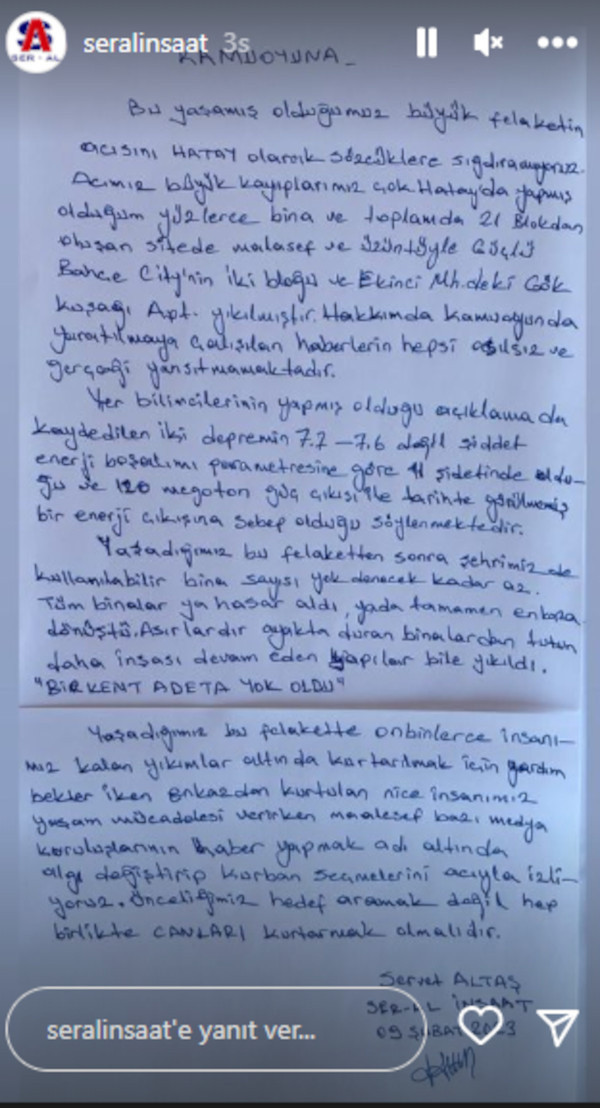 seralinsaat 3s
SER-AL
KAMUOYUNA_
Bu yaşamış olduğumuz büyük felaketin
acısını HATAY olarak sözcüklere sığdıramıyoruz.
Acımız büyük kayıplarımız çok. Hatay'da yapmış
olduğum yüzlerce bina ve toplamda 21 Blokdan
oluşan sitede malasef ve üzüntüyle Güçlü
Bahçe City'nin iki bloğu ve Ekinci Mh.deki Gök
kuşağı Apt. yıkılmıştır. Hakkımda kamuoyunda
yaratılmaya çalışılan haberlerin hepsi asılsız ve
gerçeği yansıtmamaktadır.
Yer bilimcilerinin yapmış olduğu açıklamada
kaydedilen iki depremin 7.7 - 7.6 değil şiddet
enerji boşalımı parametresine göre 11 şidetinde oldu-
ğu ve 120 megaton güç çıkışı ile tarihte görülmemiş
bir enerji çıkışına sebep olduğu söylenmektedir.
Yaşadığımız bu felaketten sonra şehrimizde
kullanılabilir bina sayısı yok denecek kadar az.
Tüm binalar ya hasar aldı, yada tamamen enkaza
dönüştü. Asırlardır ayakta duran binalardan tutun
daha inşası devam eden yapılar bile yıkıldı.
"BİR KENT ADETA YOK OLDU"
Yaşadığımız bu felakette onbinlerce insanı-
mız kalan yıkımlar altında kurtarılmak için yardım
bekler iken enkazdan kurtulan nice insanımız
yaşam mücadelesi verirken maalesef bazı medya
kuruluşlarının haber yapmak adı altında
algı değiştirip kurban seçmelerini acıyla izli-
yoruz. Önceliğimiz hedef aramak değil hep
birlikte CANLARI kurtarmak olmalıdır.
Servet ALTAŞ
SER-AL İNŞAAT
09 ŞUBAT 2023
seralinsaat'e yanıt ver...